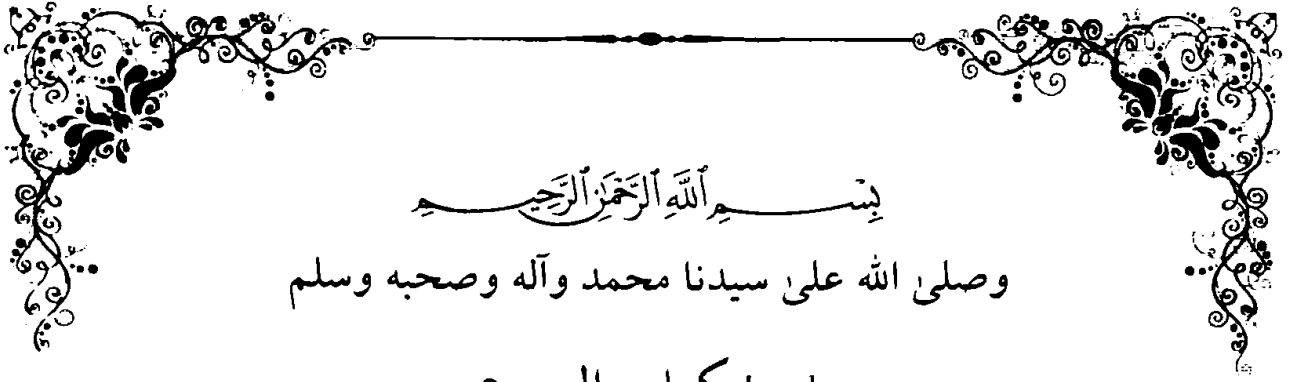 بِسْمِ ٱللَّهِ ٱلرَّحْمَٰنِ ٱلرَّحِيمِ
وصلىٰ الله علىٰ سيدنا محمد وآله وصحبه وسلم